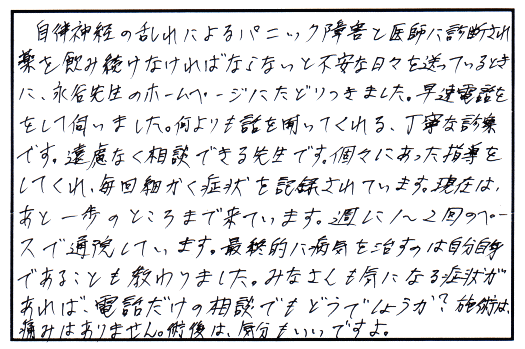 自律神経の乱れによるパニック障害と医師に診断され
薬を飲み続けなければならないと不安な日々を送っているとき
に、永谷先生のホームページにたどりつきました。早速電話を
をして伺いました。何よりも話を聞いてくれる、丁寧な診察
です。遠慮なく相談できる先生です。個々にあった指導を
してくれ、毎回細かく症状を記録されています。現在は、
あと一歩のところまで来ています。週に1〜2回のペー
スで通院しています。最終的に病気を治すのは自分自身
であることも教わりました。みなさんも気になる症状が
あれば、電話だけの相談でもどうでしょうか？施術は、
痛みはありません。術後は、気分もいいですよ。